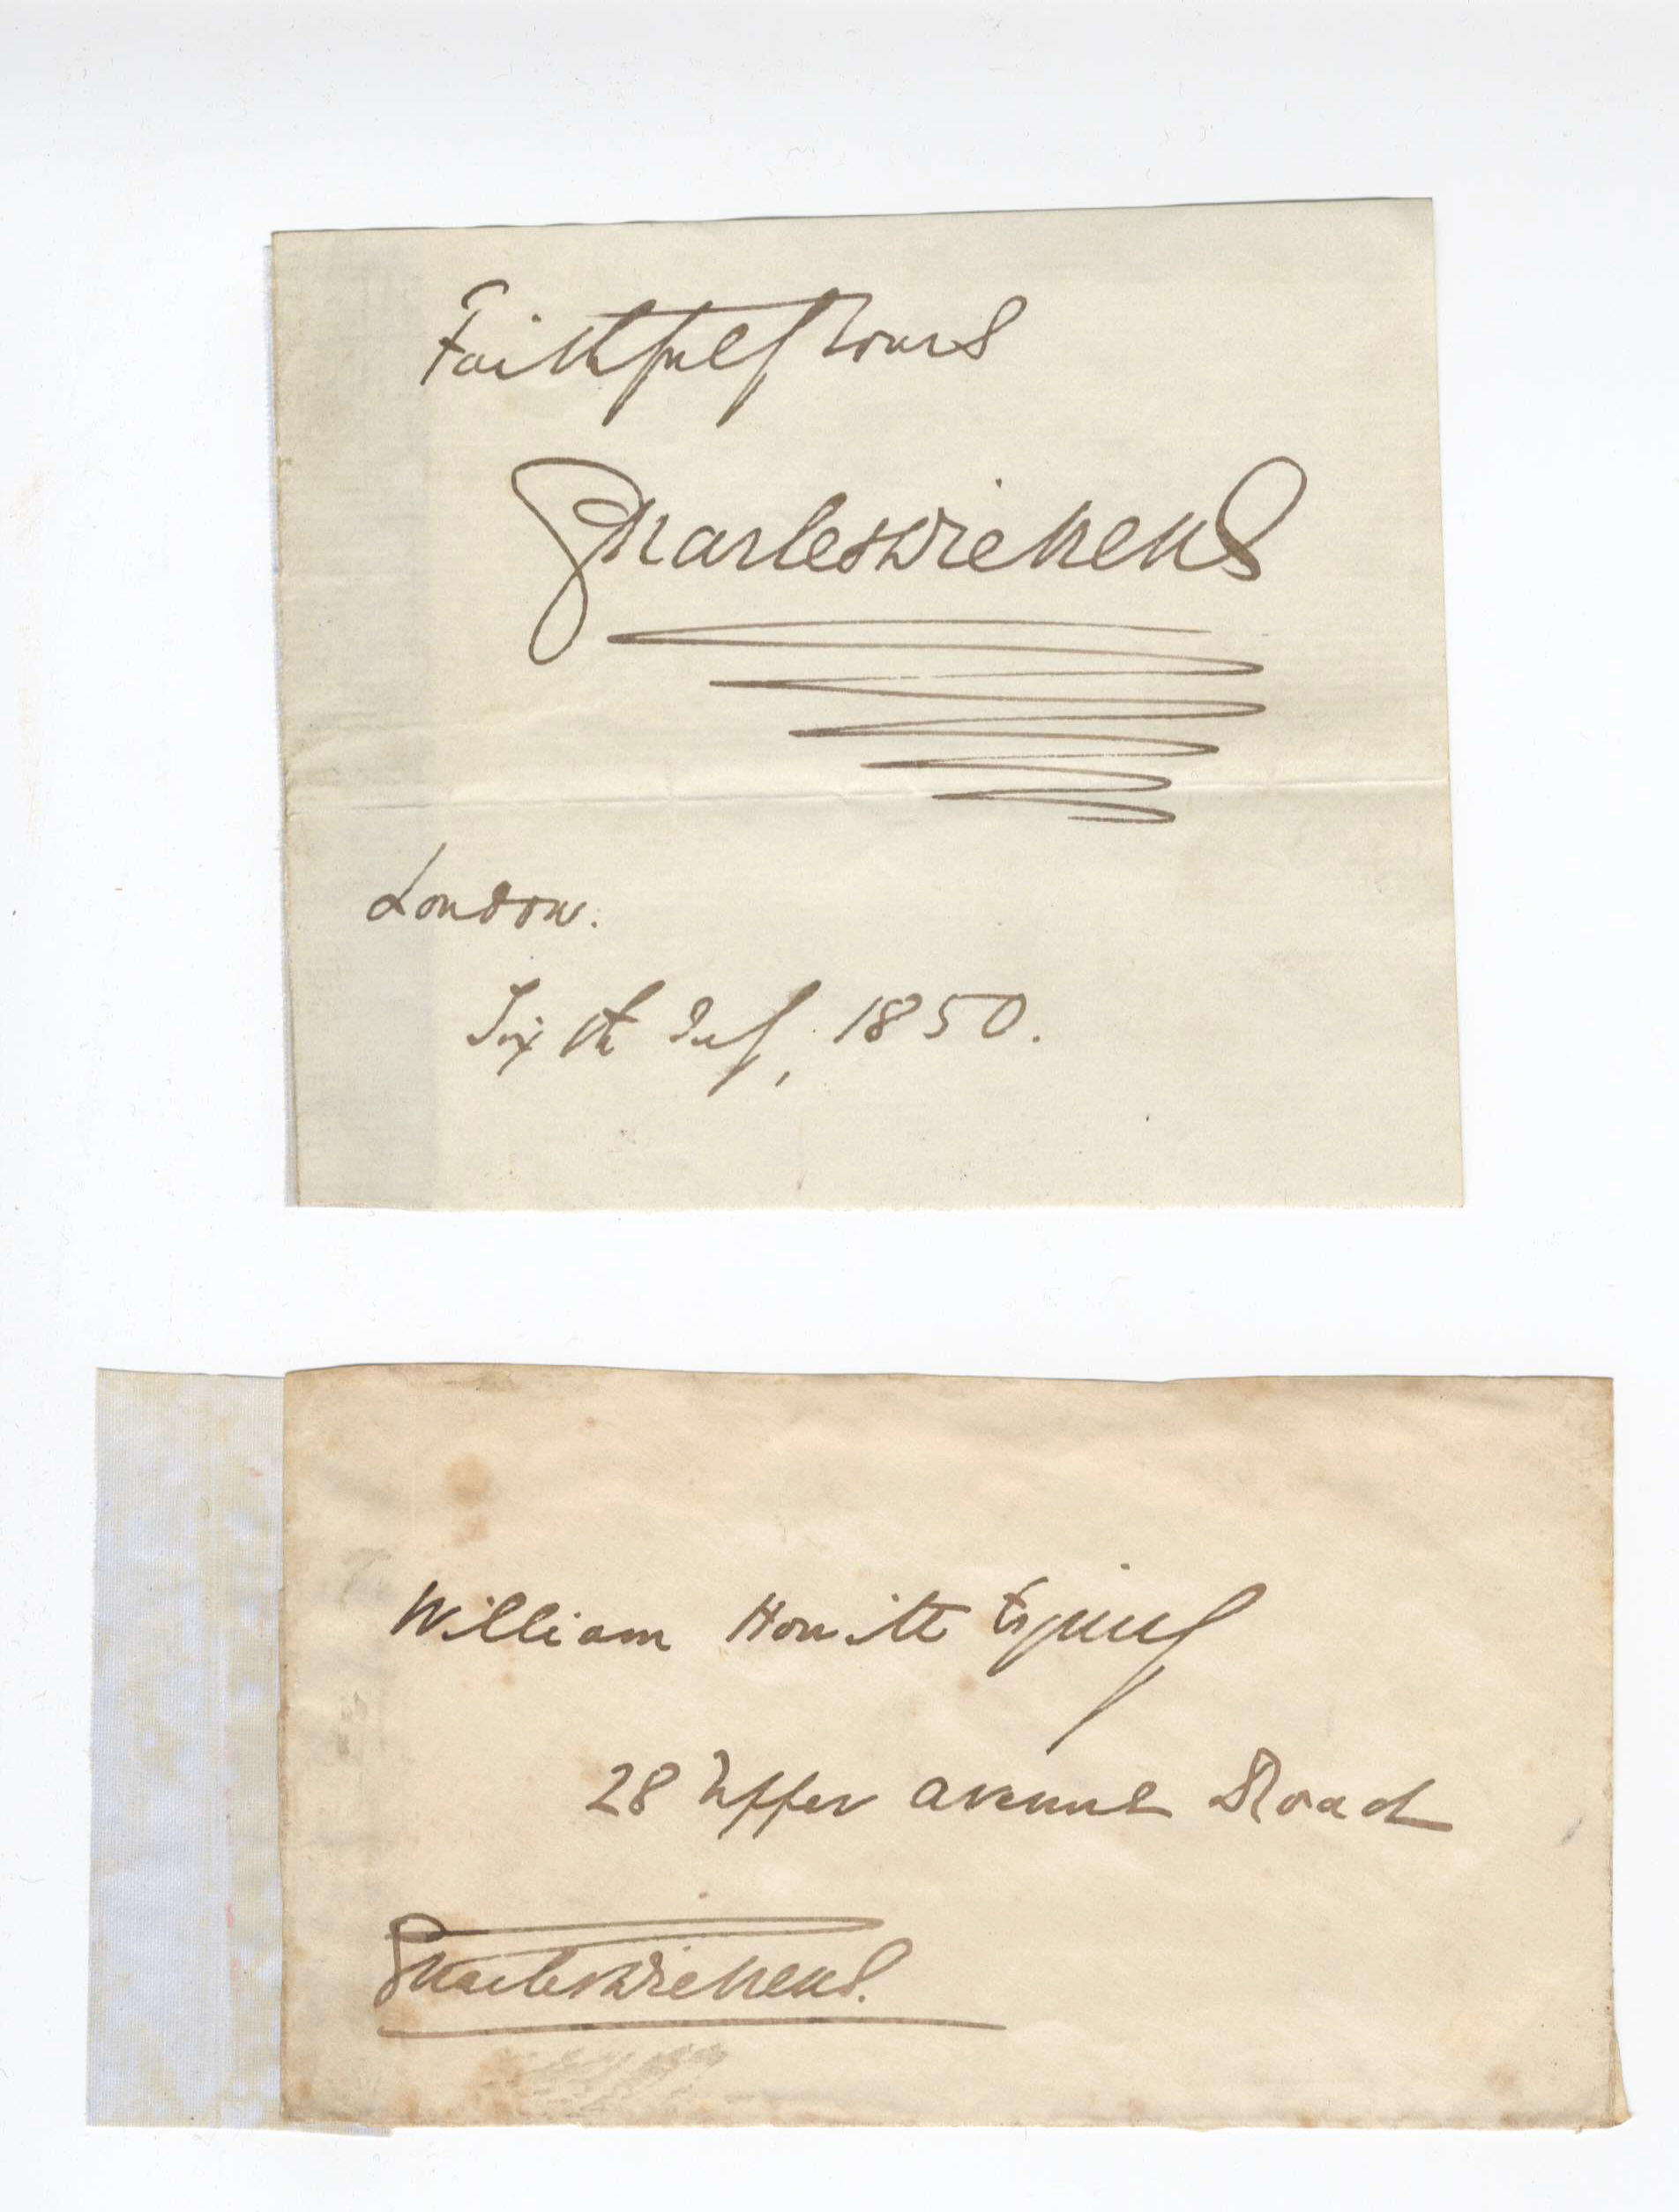 Faithfully Yours
Charles Dickens
London.
Sixth July, 1850.
William Howitt Esquire
28 Upper Avenue Road
Charles Dickens.